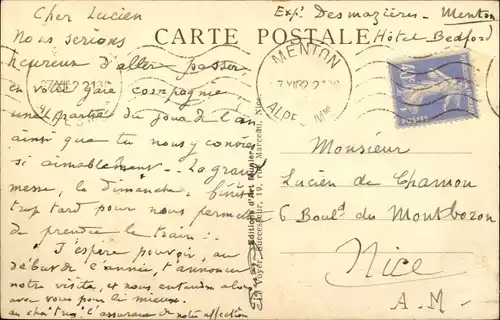 Cher Lucien
Nous serions
heureux d'aller passer,
en votre gaie compagnie,
une partie du jour de l'an
ainsi que tu nous y convies
si aimablement. La grand
messe, le dimanche, finit
trop tard pour nous permettre
de prendre le train.
J'espère pouvoir, au
début de l'année, t'annoncer
notre visite, et nous entendre alors
avec vous pour le mieux.
l'assurance de notre affection
CARTE POSTALE
Exp: Desmazières - Menton
Hôtel Bedford
MENTON
ALPES Mmes
POSTES
Editions d'Art Munier
Successeur, 19, rue Marceau, Nice
Monsieur
Lucien de Chamon
6 Bould du Montbozon
Nice
A-M-